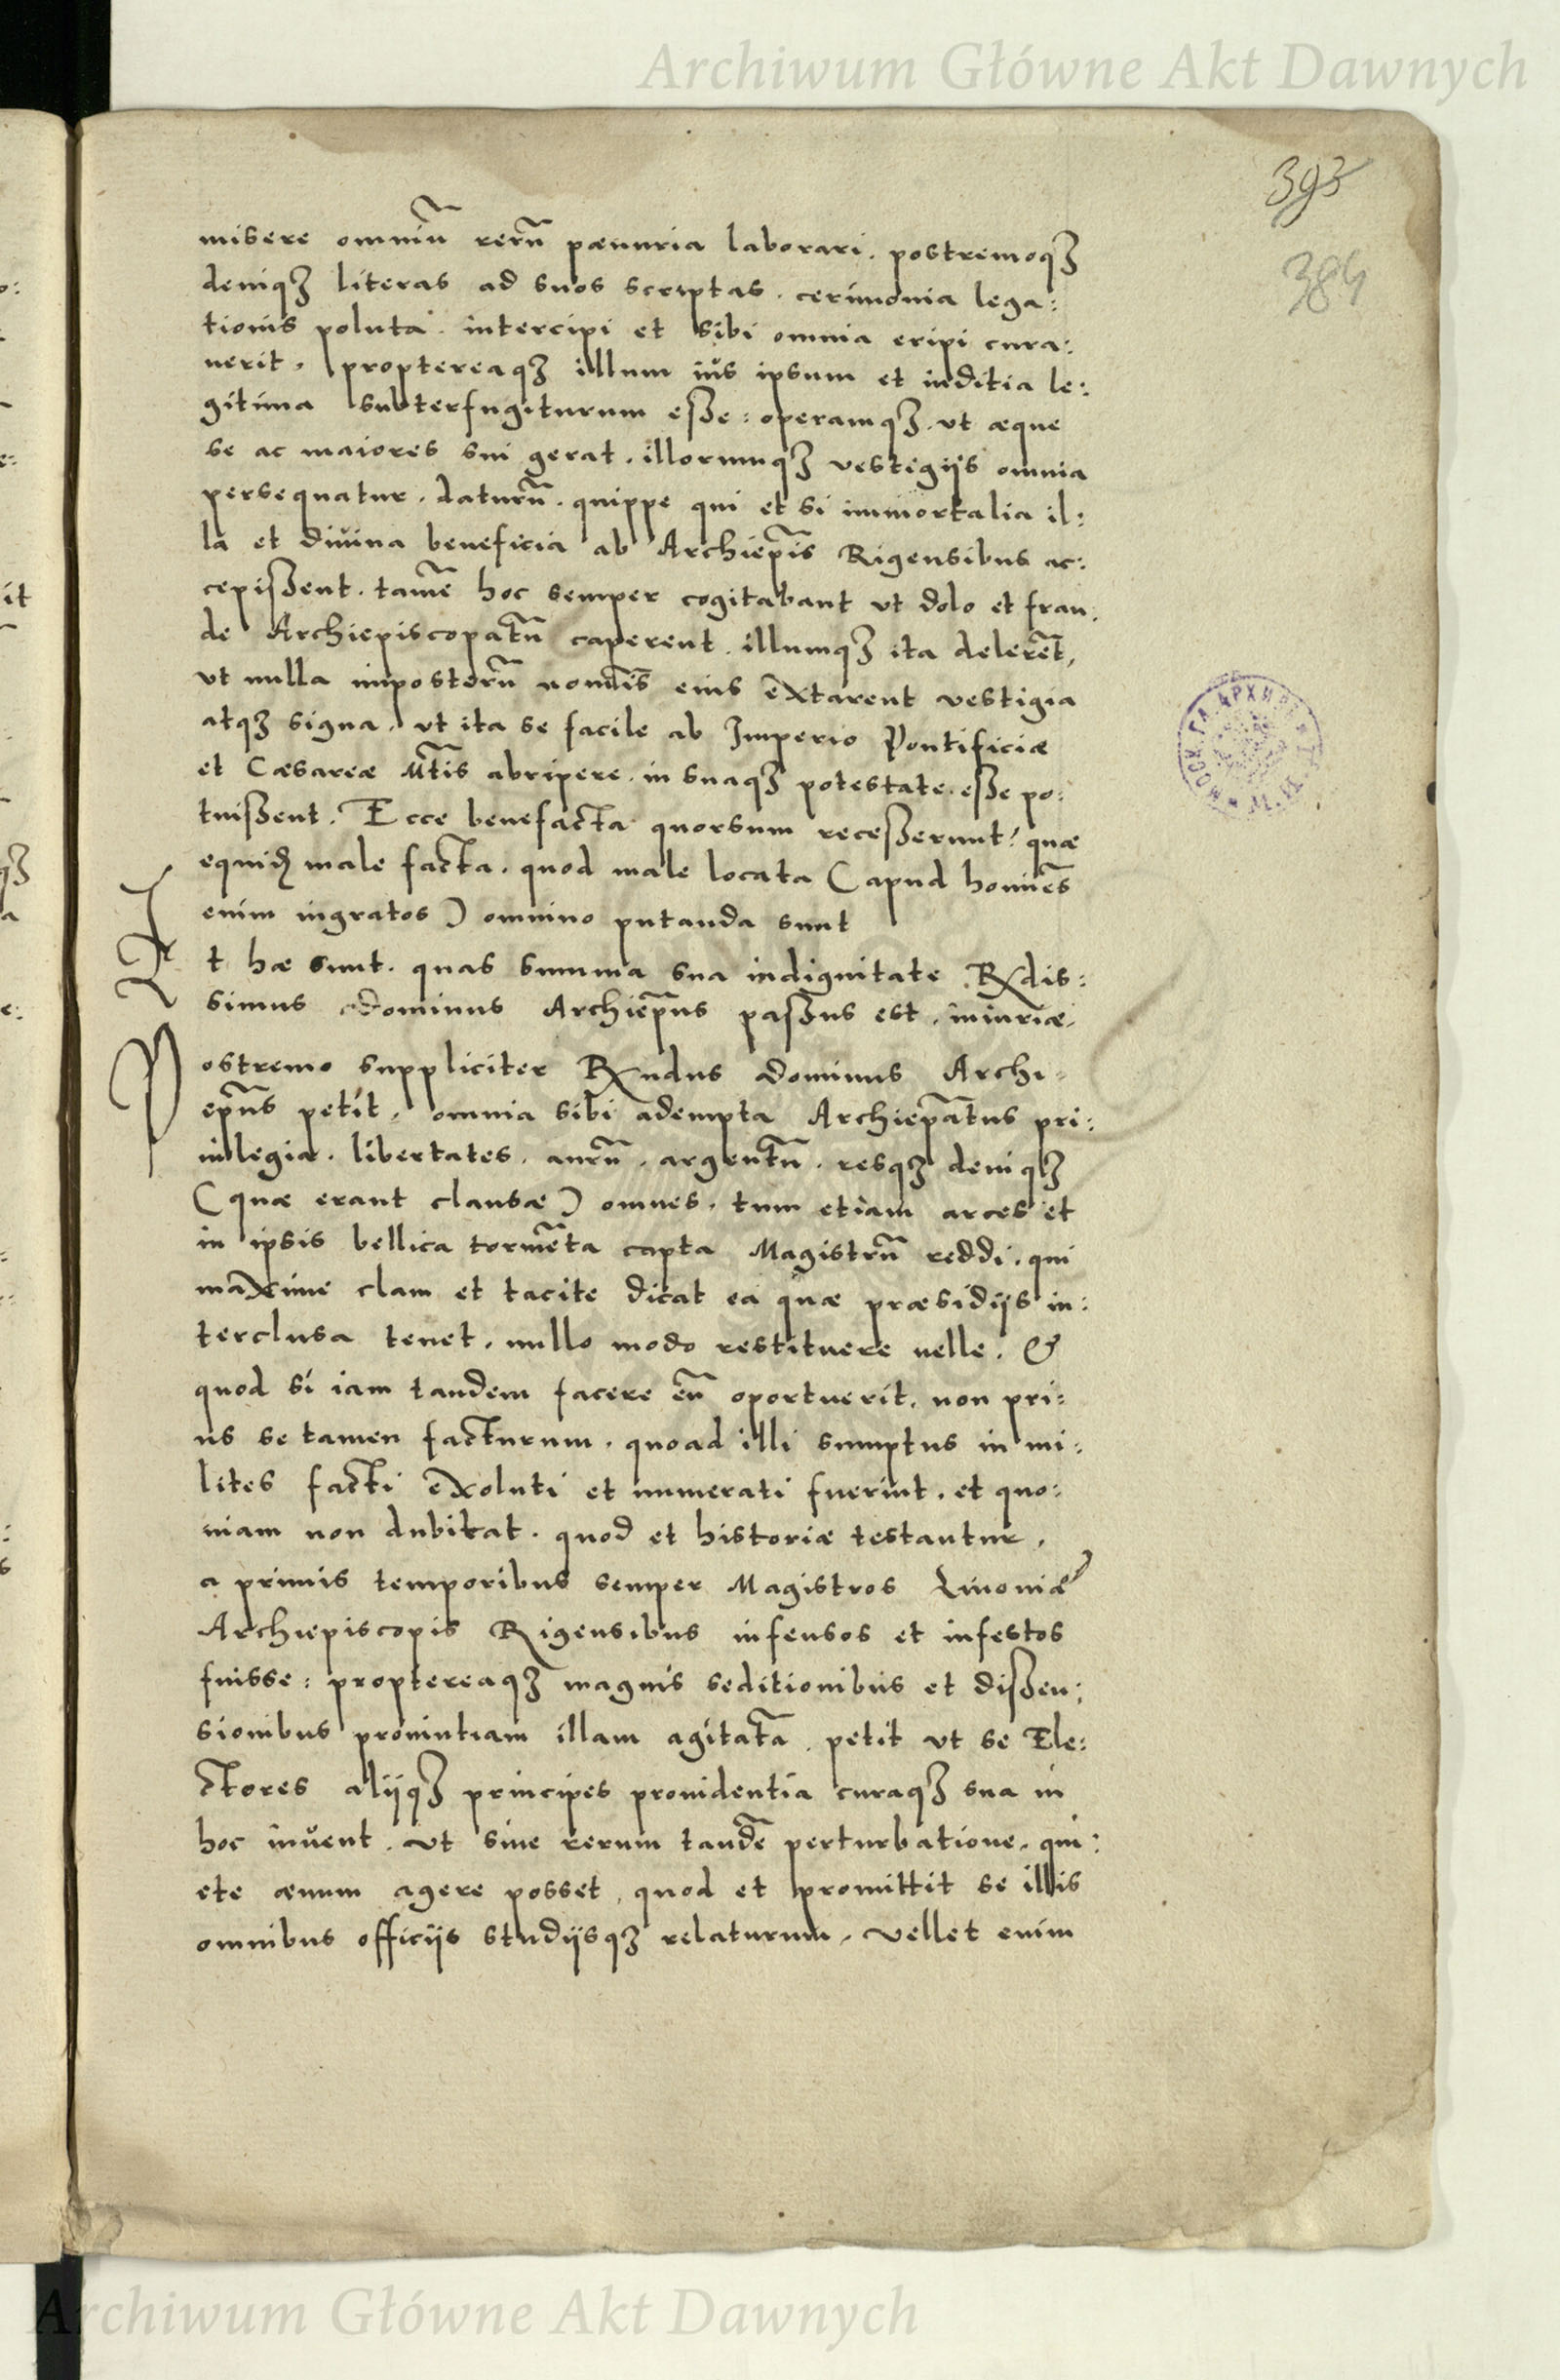 Archiwum Główne Akt Dawnych
393
384
misere omniũ rerũ pænuria laborari. postremoqꝫ
deniqꝫ literas ad suos scriptas. cerimonia lega:
tionis poluta. intercipi et sibi omnia eripi cura:
uerit. proptereaqꝫ illum ius ipsum et inditia le:
gitima subterfugiturum eße: operamqꝫ. ut æque
se ac maiores sui gerat. illorumqꝫ vestigijs omnia
persequatur. daturũ. quippe qui et si immortalia il:
la et diuina beneficia ab Archiepĩs Rigensibus ac:
cepißent. tamẽ hoc semper cogitabant ut dolo et frau:
de Archiepiscopatũ caperent. illumqꝫ ita delerẽt,
ut nulla imposterũ nomĩs eius extarent vestigia
atqꝫ signa. ut ita se facile ab Imperio Pontificiæ
et Cæsareæ Mtĩs abripere. in suaqꝫ potestate. eße po:
tuißent. Ecce benefacta quorsum receßerunt? quæ
equidẽ male facta. quod male locata (apud hominẽs
enim ingratos) omnino putanda sunt
Et hæ sunt. quas summa sua indignitate Rdis:
simus dominus Archiep̃us paßus est. iniuriæ.
Postremo suppliciter Rndus dominus Archi:
ep̃us petit. omnia sibi adempta Archiep̃atus pri:
uilegia. libertates. aurũ. argentũ. resqꝫ deniqꝫ
(quæ erant clausæ) omnes. tum etiam arces et
in ipsis bellica tormẽta capta Magistrũ reddi. qui
maxime clam et tacite dicat ea quæ præsidijs in:
terclusa tenet. nullo modo restituere uelle. &
quod si iam tandem facere eũ oportuerit. non pri:
us se tamen facturum. quoad illi sumptus in mi:
lites facti exoluti et numerati fuerint. et quo:
niam non dubitat. quod et historiæ testantur.
a primis temporibus semper Magistros Liuoniæ
Archiepiscopis Rigensibus infensos et infestos
fuisse: proptereaqꝫ magnis seditionibus et dißen:
sionibus prouintiam illam agitatã. petit ut se Ele:
ctores alijqꝫ principes prouidentia curaqꝫ sua in
hoc iuuent. ut sine rerum tandẽ perturbatione. qui:
ete æuum agere posset. quod et promittit se illis
omnibus officijs studijsqꝫ relaturum. vellet enim
Archiwum Główne Akt Dawnych